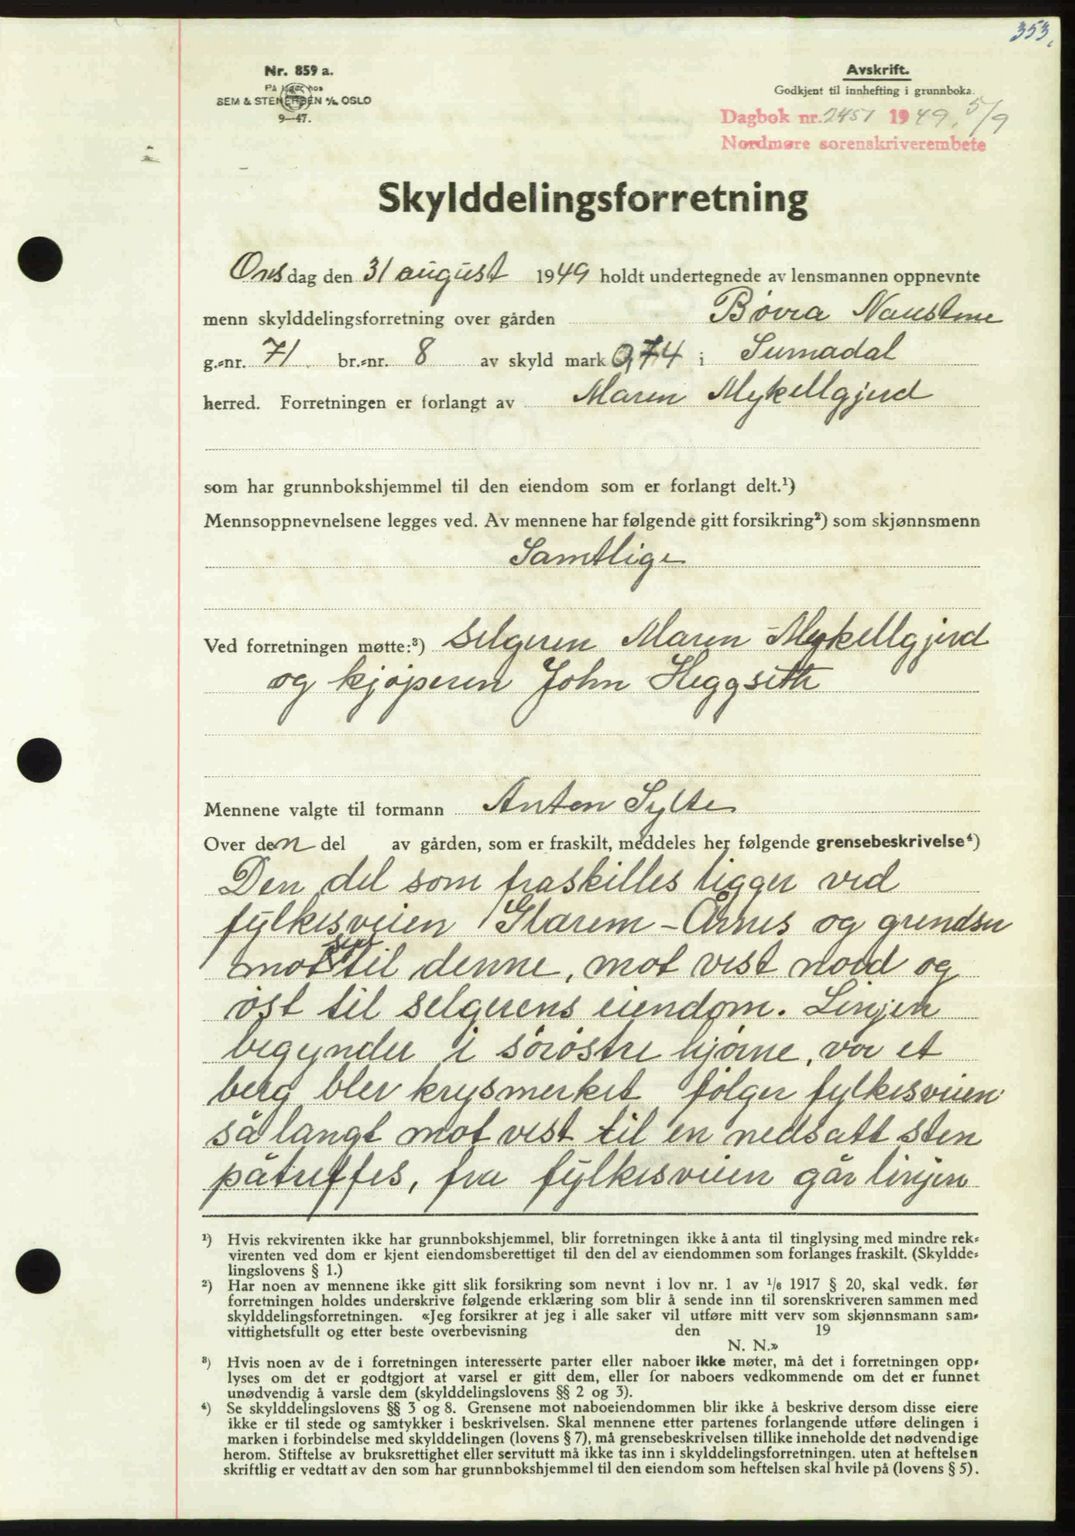 353.
Nr. 859 a.
På lager hos
SEM & STENERSEN A/S OSLO
9—47.
Avskrift.
Godkjent til innhefting i grunnboka.
Dagbok nr. 2451 1949, 5/9
Nordmøre sorenskriverembete
Skylddelingsforretning
Onsdag den 31 august 1949 holdt undertegnede av lensmannen oppnevnte
menn skylddelingsforretning over gården Bøvra Naustene
g.-nr. 71 br.-nr. 8 av skyld mark 0,74 i Surnadal
herred. Forretningen er forlangt av Maren Mykellgjerd
som har grunnbokshjemmel til den eiendom som er forlangt delt.¹)
Mennsoppnevnelsene legges ved. Av mennene har følgende gitt forsikring²) som skjønnsmenn
Samtlige
Ved forretningen møtte:³) selgeren Maren Mykellgjerd
og kjøperen John Heggseth
Mennene valgte til formann Anton Sylte
Over den del av gården, som er fraskilt, meddeles her følgende grensebeskrivelse⁴)
Den del som fraskilles ligger ved
fylkesveien Glærem-Årnes og grendser
mot syd til denne, mot vest nord og
øst til selgerens eiendom. Linjen
begynder i sørøstre hjørne, vor et
berg blev krysmerket følger fylkesveien
så langt mot vest til en nedsatt sten
påtreffes, fra fylkesveien går linjen
¹) Hvis rekvirenten ikke har grunnbokshjemmel, blir forretningen ikke å anta til tinglysing med mindre rek-
virenten ved dom er kjent eiendomsberettiget til den del av eiendommen som forlanges fraskilt. (Skyldde-
lingslovens § 1.)
²) Har noen av mennene ikke gitt slik forsikring som nevnt i lov nr. 1 av ¹/₆ 1917 § 20, skal vedk. før
forretningen holdes underskrive følgende erklæring som blir å sende inn til sorenskriveren sammen med
skylddelingsforretningen. «Jeg forsikrer at jeg i alle saker vil utføre mitt verv som skjønnsmann sam-
vittighetsfullt og etter beste overbevisning den 19
N. N.»
³) Hvis noen av de i forretningen interesserte parter eller naboer ikke møter, må det i forretningen opp-
lyses om det er godtgjort at varsel er gitt dem, eller for naboers vedkommende om det er funnet
unødvendig å varsle dem (skylddelingslovens §§ 2 og 3).
⁴) Se skylddelingslovens §§ 3 og 8. Grensene mot naboeiendommen blir ikke å beskrive dersom disse eiere
ikke er til stede og samtykker i beskrivelsen. Skal mennene etter partenes forlangende utføre delingen i
marken i forbindelse med skylddelingen (lovens § 7), må grensebeskrivelsen tillike inneholde det nødvendige
herom. Stiftelse av bruksrettighet eller servitutt må ikke tas inn i skylddelingsforretningen, uten at heftelsen
skriftlig er vedtatt av den som har grunnbokshjemmel til den eiendom som heftelsen skal hvile på (lovens § 5).